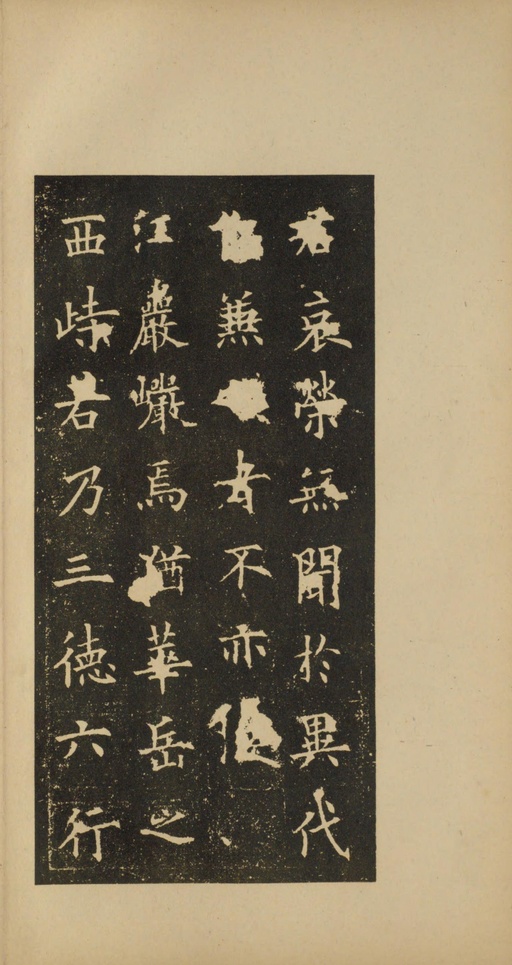 若哀榮無聞於異代
兼者不亦
江巖巖焉猶華岳之
西峙若乃三德六行